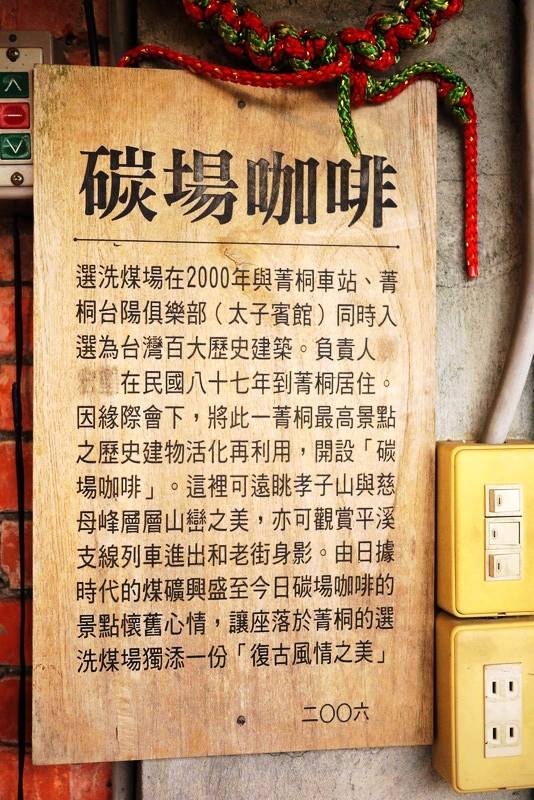 碳場咖啡
選洗煤場在2000年與菁桐車站、菁
桐台陽俱樂部（太子賓館）同時入
選為台灣百大歷史建築。負責人
在民國八十七年到菁桐居住。
因緣際會下，將此一菁桐最高景點
之歷史建物活化再利用，開設「碳
場咖啡」。這裡可遠眺孝子山與慈
母峰層層山巒之美，亦可觀賞平溪
支線列車進出和老街身影。由日據
時代的煤礦興盛至今日碳場咖啡的
景點懷舊心情，讓座落於菁桐的選
洗煤場獨添一份「復古風情之美」
二〇〇六